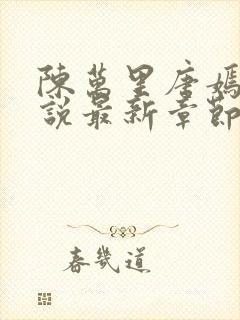 陳萬里唐嫣
說最新章節
春幾道